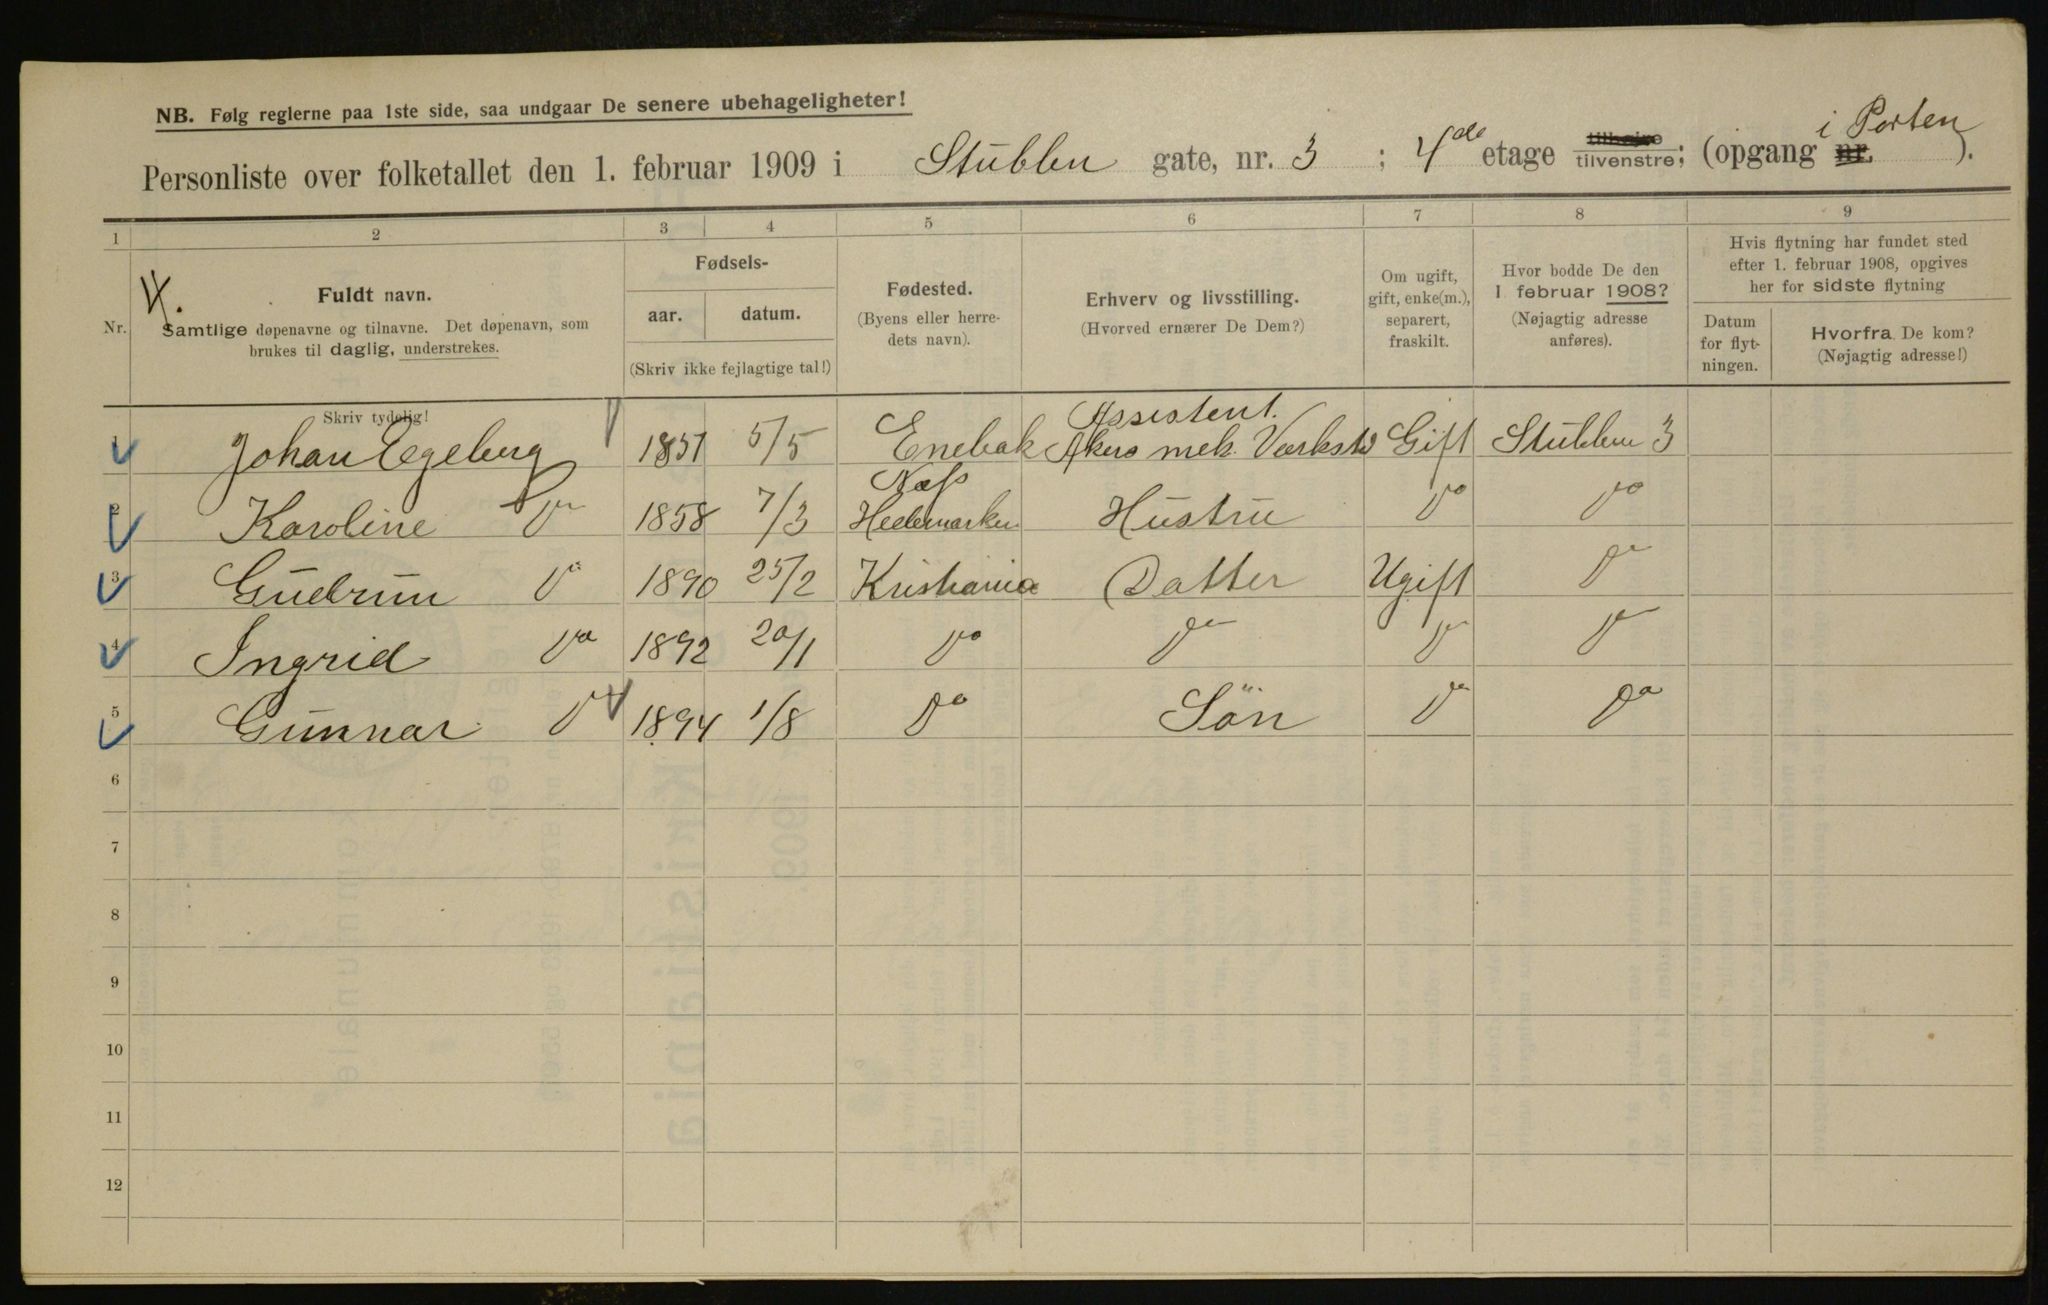 NB. Følg reglerne paa 1ste side, saa undgaar De senere ubehageligheter!
Personliste over folketallet den 1. februar 1909 i Stubljan gate, nr. 3 ; 4de etage tilhøire tilvenstre; (opgang nr. i Porten ).
1 2 3 4 5 6 7 8 9
4.
Nr.
Fuldt navn.
Samtlige døpenavne og tilnavne. Det døpenavn, som
brukes til daglig, understrekes.
Skriv tydelig!
Fødsels-
aar. datum.
(Skriv ikke fejlagtige tal!)
Fødested.
(Byens eller herre-
dets navn).
Erhverv og livsstilling.
(Hvorved ernærer De Dem?)
Om ugift,
gift, enke(m.),
separert,
fraskilt.
Hvor bodde De den
1 februar 1908?
(Nøjagtig adresse
anføres).
Hvis flytning har fundet sted
efter 1. februar 1908, opgives
her for sidste flytning
Datum
for flyt-
ningen.
Hvorfra De kom?
(Nøjagtig adresse!)
Assistent.
1 Johan Egeberg 1851 5/5 Enebak Akers mek. Værksted Gift Stubben 3
Næss
2 Karoline Do 1858 7/3 Hedemarken Hustru Do Do
3 Gudrun Do 1890 25/2 Kristiania Datter Ugift Do
4 Ingrid Do 1892 20/1 Do Do Do Do
5 Gunnar Do 1894 1/8 Do Sön Do Do
6
7
8
9
10
11
12